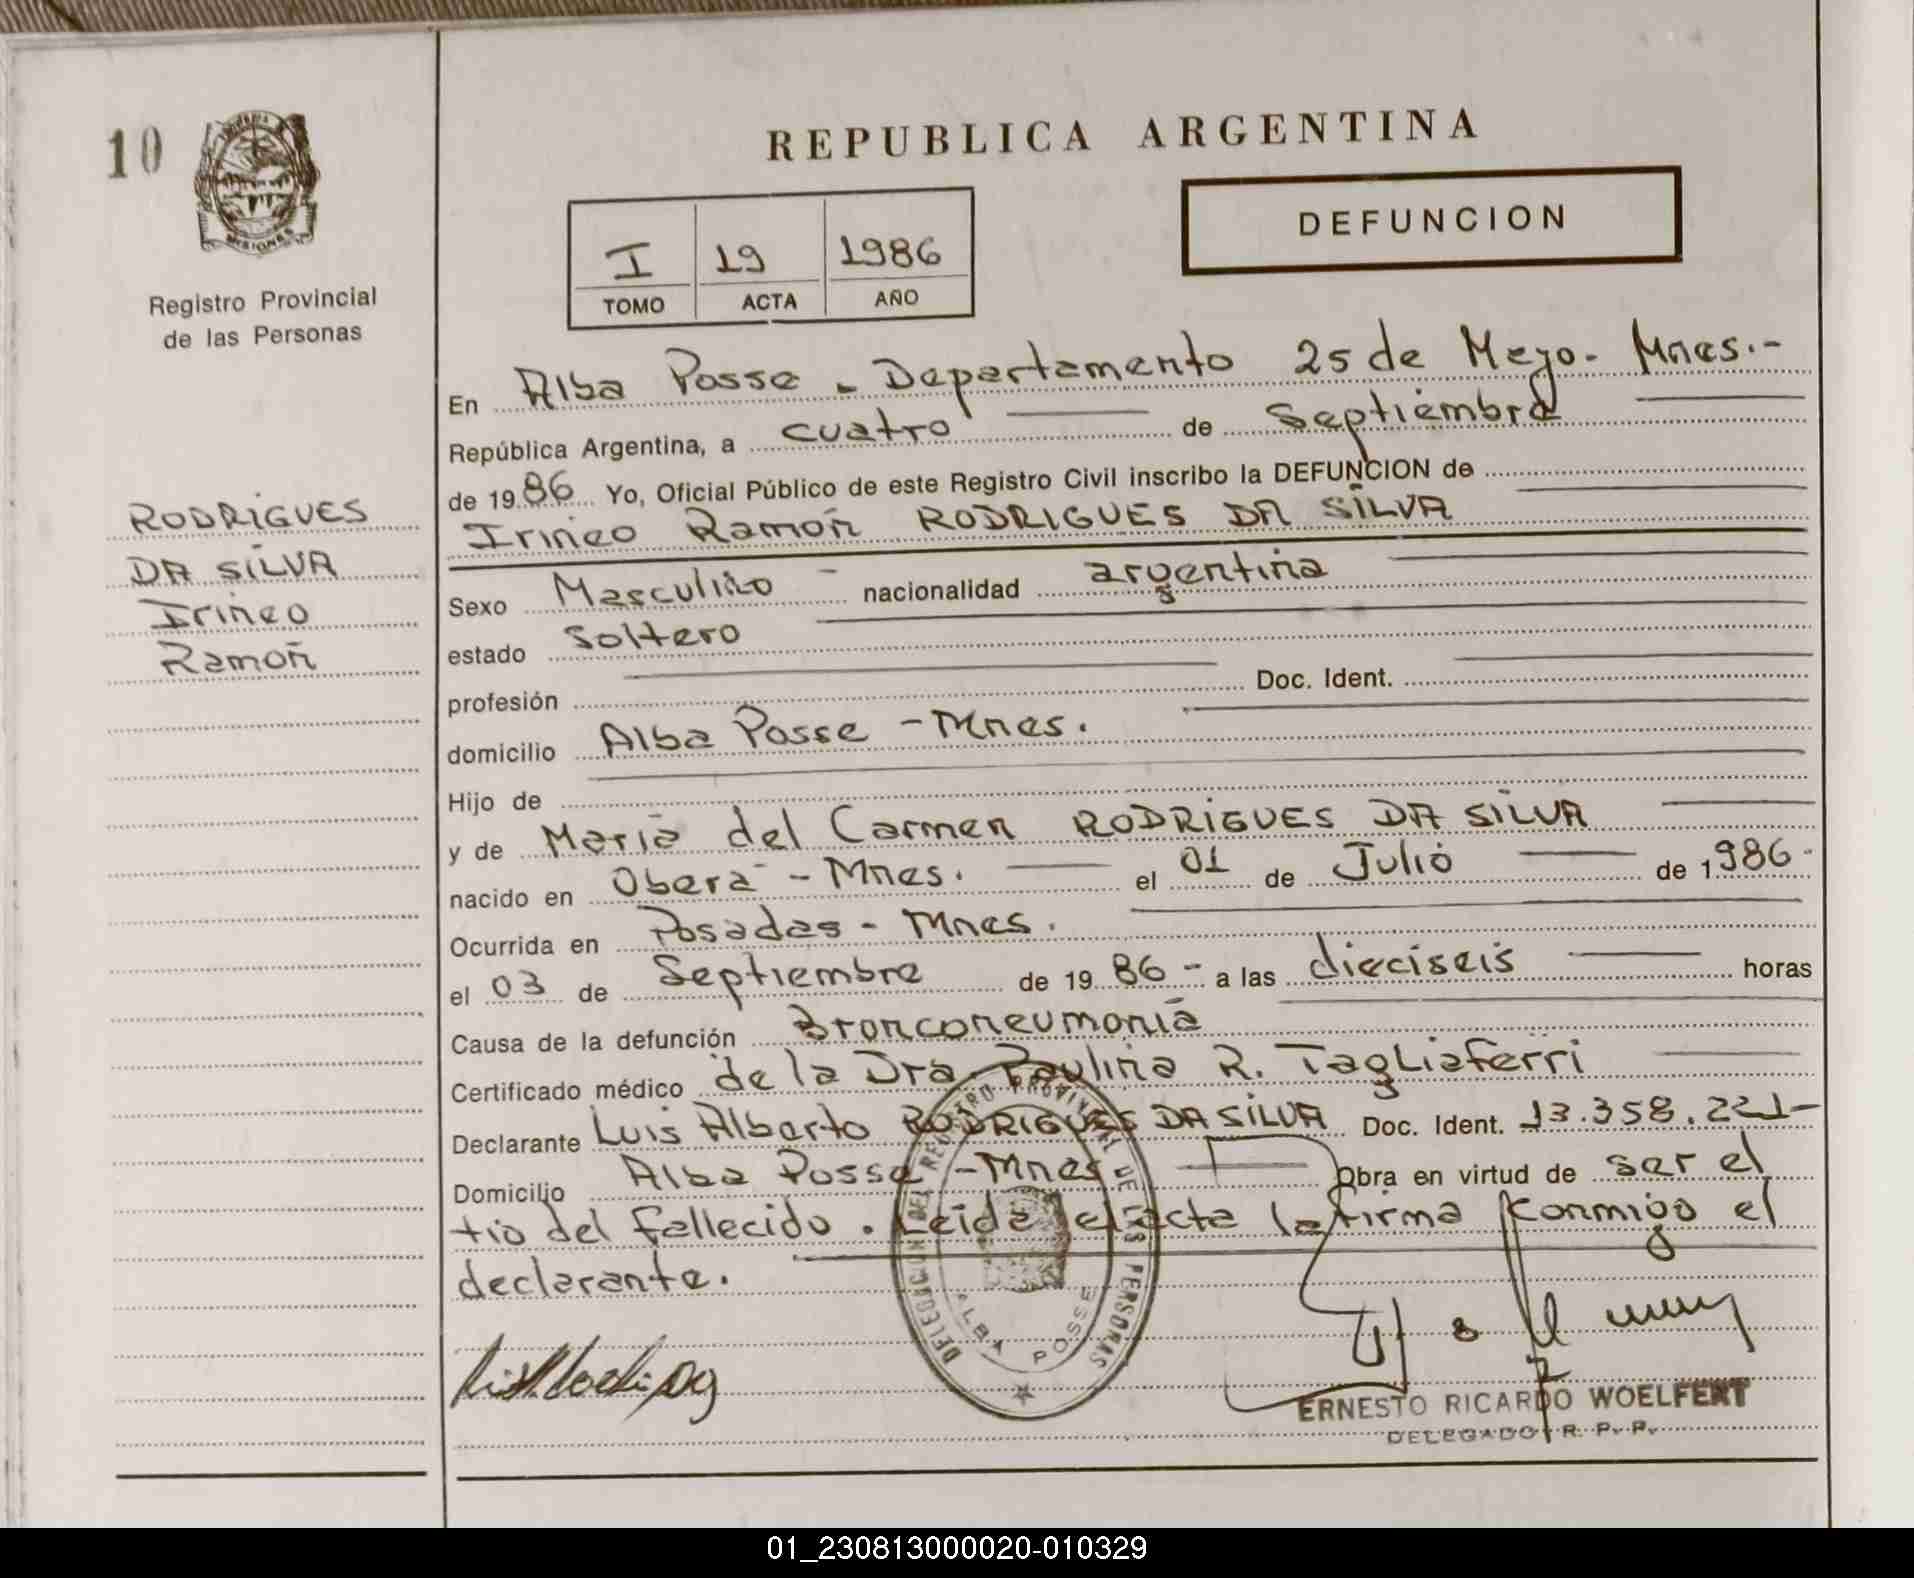 10
MISIONES
Registro Provincial
de las Personas
RODRIGUES
DA SILVA
Irineo
Ramón
REPUBLICA ARGENTINA
I 19 1986
TOMO ACTA AÑO
DEFUNCION
En Alba Posse - Departamento 25 de Mayo - Mnes.-
República Argentina, a cuatro de Septiembre
de 1986 Yo, Oficial Público de este Registro Civil inscribo la DEFUNCION de
Irineo Ramón RODRIGUES DA SILVA
Sexo Masculino - nacionalidad argentina
estado Soltero
profesión Doc. Ident.
domicilio Alba Posse - Mnes.
Hijo de
y de María del Carmen RODRIGUES DA SILVA
nacido en Oberá - Mnes. el 01 de Julio de 1986-
Ocurrida en Posadas - Mnes.
el 03 de Septiembre de 1986 - a las dieciseis horas
Causa de la defunción Bronconeumonía
Certificado médico de la Dra. Paulina R. Tagliaferri
Declarante Luis Alberto RODRIGUES DA SILVA Doc. Ident. 13.358.221-
Domicilio Alba Posse - Mnes Obra en virtud de ser el
tío del fallecido. Leída el acta la firma conmigo el
declarante.
DELEGACION DEL REGISTRO PROVINCIAL DE LAS PERSONAS
ALBA POSSE
ERNESTO RICARDO WOELFERT
DELEGADO R. P. P.
01_230813000020-010329